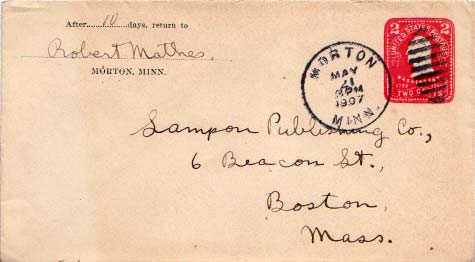 After 10 days, return to
Robert Mathes,
MORTON, MINN.
MORTON
MAY
21
PM
1907
MINN.
2 UNITED STATES POSTAGE 2
WASHINGTON
TWO CENTS
Sampon Publishing Co.,
6 Beacon St.,
Boston,
Mass.